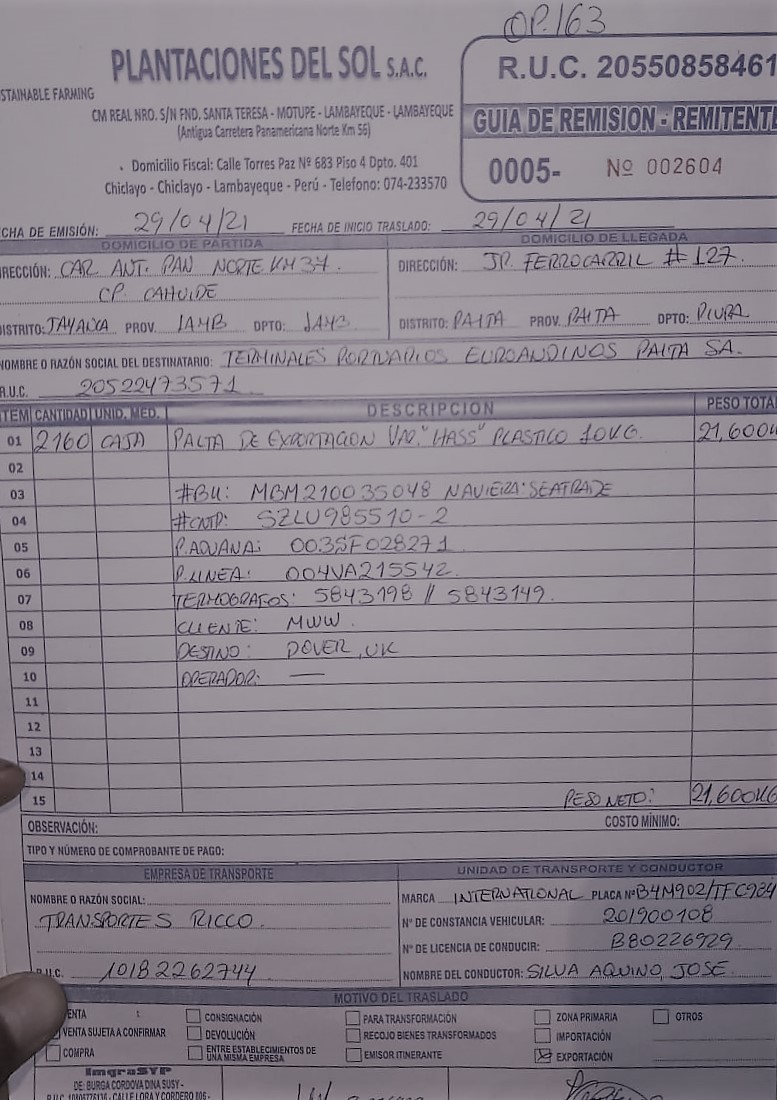 OP.163
PLANTACIONES DEL SOL S.A.C.
R.U.C. 20550858461
STAINABLE FARMING
CM REAL NRO. S/N FND. SANTA TERESA - MOTUPE - LAMBAYEQUE - LAMBAYEQUE
(Antigua Carretera Panamericana Norte Km 56)
GUIA DE REMISION - REMITENTE
Domicilio Fiscal: Calle Torres Paz Nº 683 Piso 4 Dpto. 401
Chiclayo - Chiclayo - Lambayeque - Perú - Telefono: 074-233570
0005- Nº 002604
CHA DE EMISIÓN: 29/04/21 FECHA DE INICIO TRASLADO: 29/04/21
DOMICILIO DE PARTIDA DOMICILIO DE LLEGADA
IRECCIÓN: CAR. ANT. PAN NORTE KM 37. DIRECCIÓN: JR. FERROCARRIL # 127.
CP. CAHUIDE
DISTRITO: JAYANCA PROV. LAMB DPTO: LAMB DISTRITO: PAITA PROV. PAITA DPTO: PIURA
NOMBRE O RAZÓN SOCIAL DEL DESTINATARIO: TERMINALES PORTUARIOS EUROANDINOS PAITA SA.
R.U.C. 20522473571
ITEM CANTIDAD UNID. MED. DESCRIPCION PESO TOTA
01 2160 CAJA PALTA DE EXPORTACION VAR. "HASS" PLASTICO 10KG. 21,600K
02
03 #BK: MBM210035048 NAVIERA: SEATRADE
04 #CNTD: SZLU985510-2
05 P.ADUANA: 003SF028271
06 P.LINEA: 004VA215542.
07 TERMOGRAFOS: 5843198 // 5843149.
08 CLIENTE: MWW.
09 DESTINO: DOVER, UK
10 OPERADOR: —
11
12
13
14
15 PESO NETO: 21,600KG
OBSERVACIÓN: COSTO MÍNIMO:
TIPO Y NÚMERO DE COMPROBANTE DE PAGO:
EMPRESA DE TRANSPORTE UNIDAD DE TRANSPORTE Y CONDUCTOR
NOMBRE O RAZÓN SOCIAL: MARCA INTERNATIONAL PLACA Nº B4M902/TFC984
TRANSPORTES RICCO. Nº DE CONSTANCIA VEHICULAR: 201900108
Nº DE LICENCIA DE CONDUCIR: B80226929.
R.U.C. 10182262744 NOMBRE DEL CONDUCTOR: SILVA AQUINO, JOSE.
MOTIVO DEL TRASLADO
ENTA : CONSIGNACIÓN PARA TRANSFORMACIÓN ZONA PRIMARIA OTROS
VENTA SUJETA A CONFIRMAR DEVOLUCIÓN RECOJO BIENES TRANSFORMADOS IMPORTACIÓN
COMPRA ENTRE ESTABLECIMIENTOS DE UNA MISMA EMPRESA EMISOR ITINERANTE EXPORTACIÓN
ImgraSYP
DE: BURGA CORDOVA DINA SUSY -